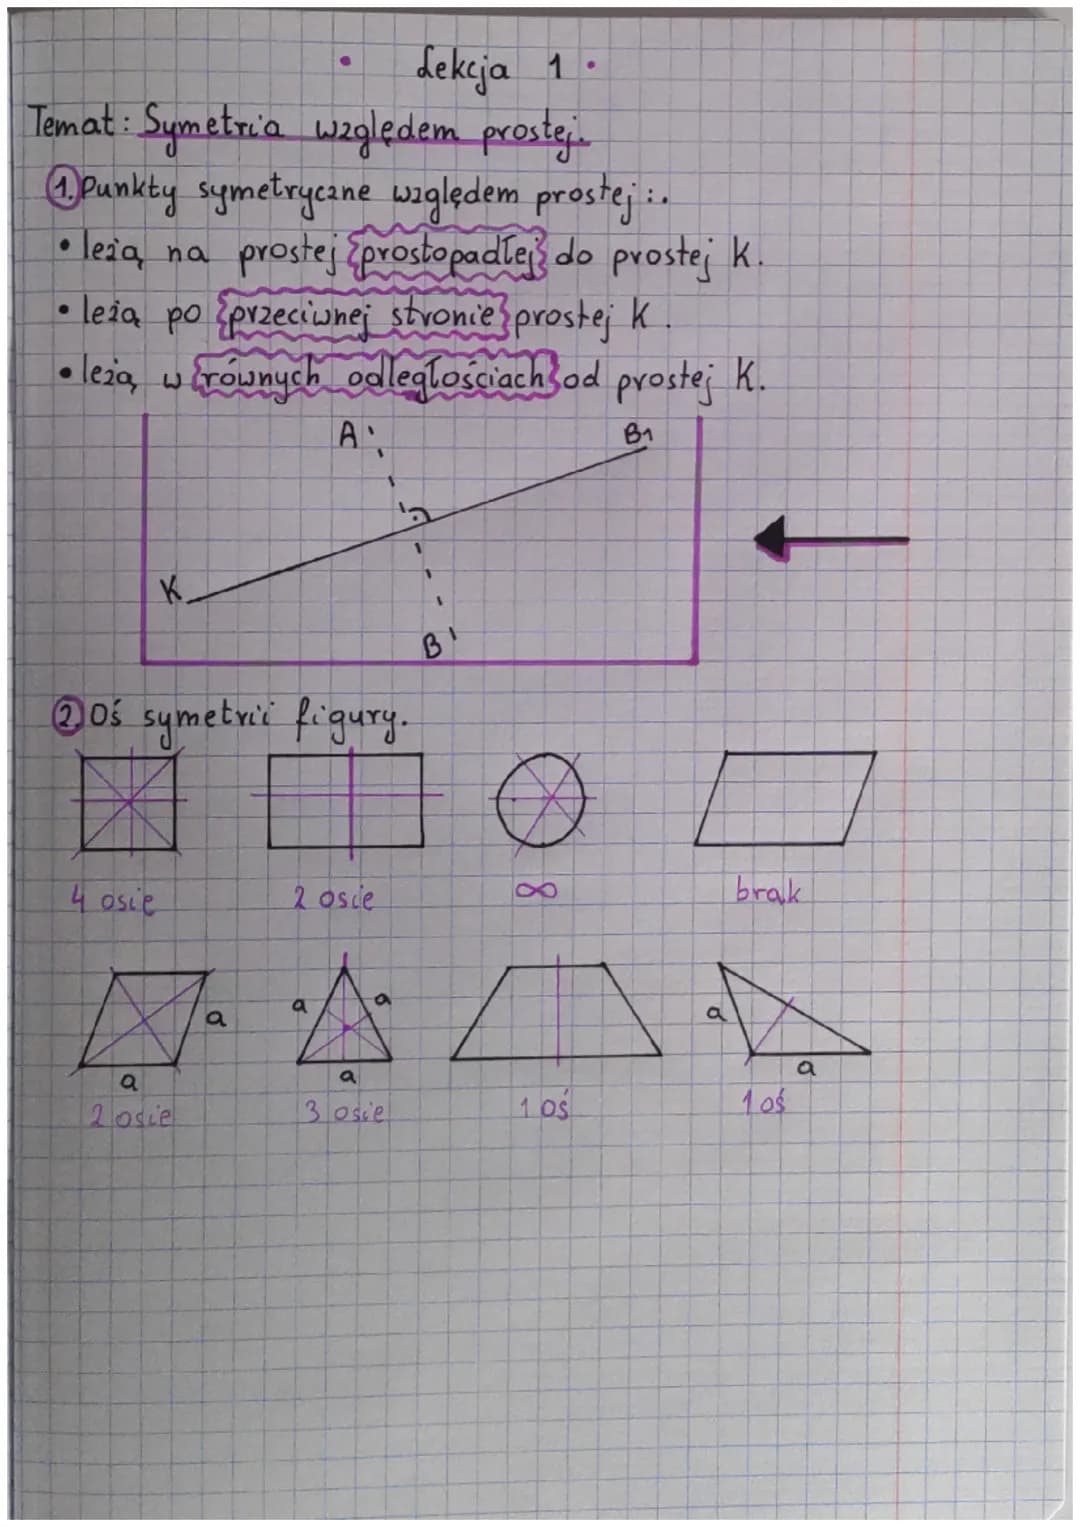 • Lekcja 1 •
Temat: Symetria względem prostej.
1. Punkty symetryczne względem prostej:.
• leżą na prostej prostopadłej do prostej K.
• leżą po przeciwnej stronie prostej K.
• leżą w równych odległościach od prostej K.
A'
B1
K
B'
2. Oś symetrii figury.
4 osie 2 osie ∞ brak
a a a a
a a a
2 osie 3 osie 1 oś 1 oś